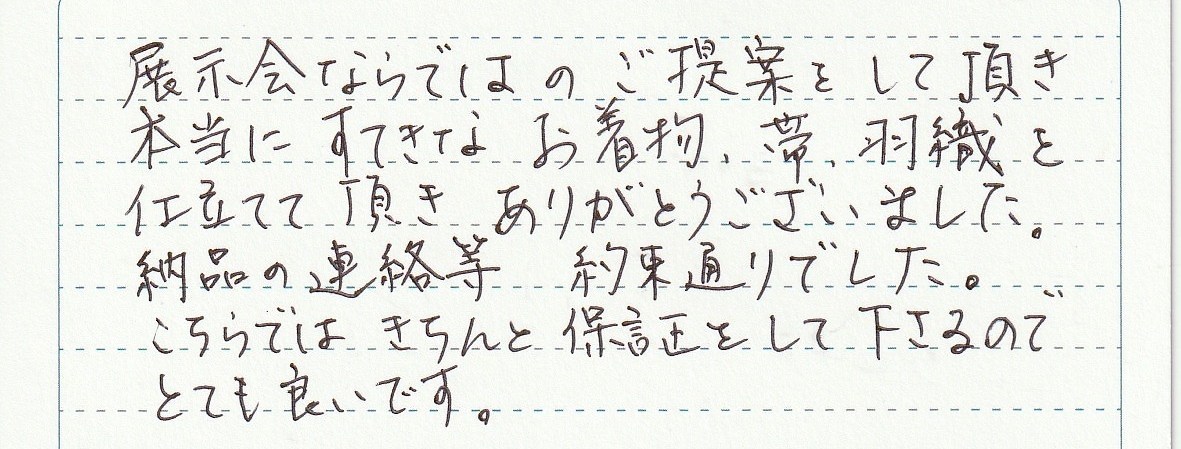 展示会ならではの ご提案を して頂き
本当に すてきな お着物、帯、羽織を
仕立てて 頂き ありがとうございました。
納品の連絡等　約束通りでした。
こちらでは きちんと 保証をして下さるので
とても 良いです。